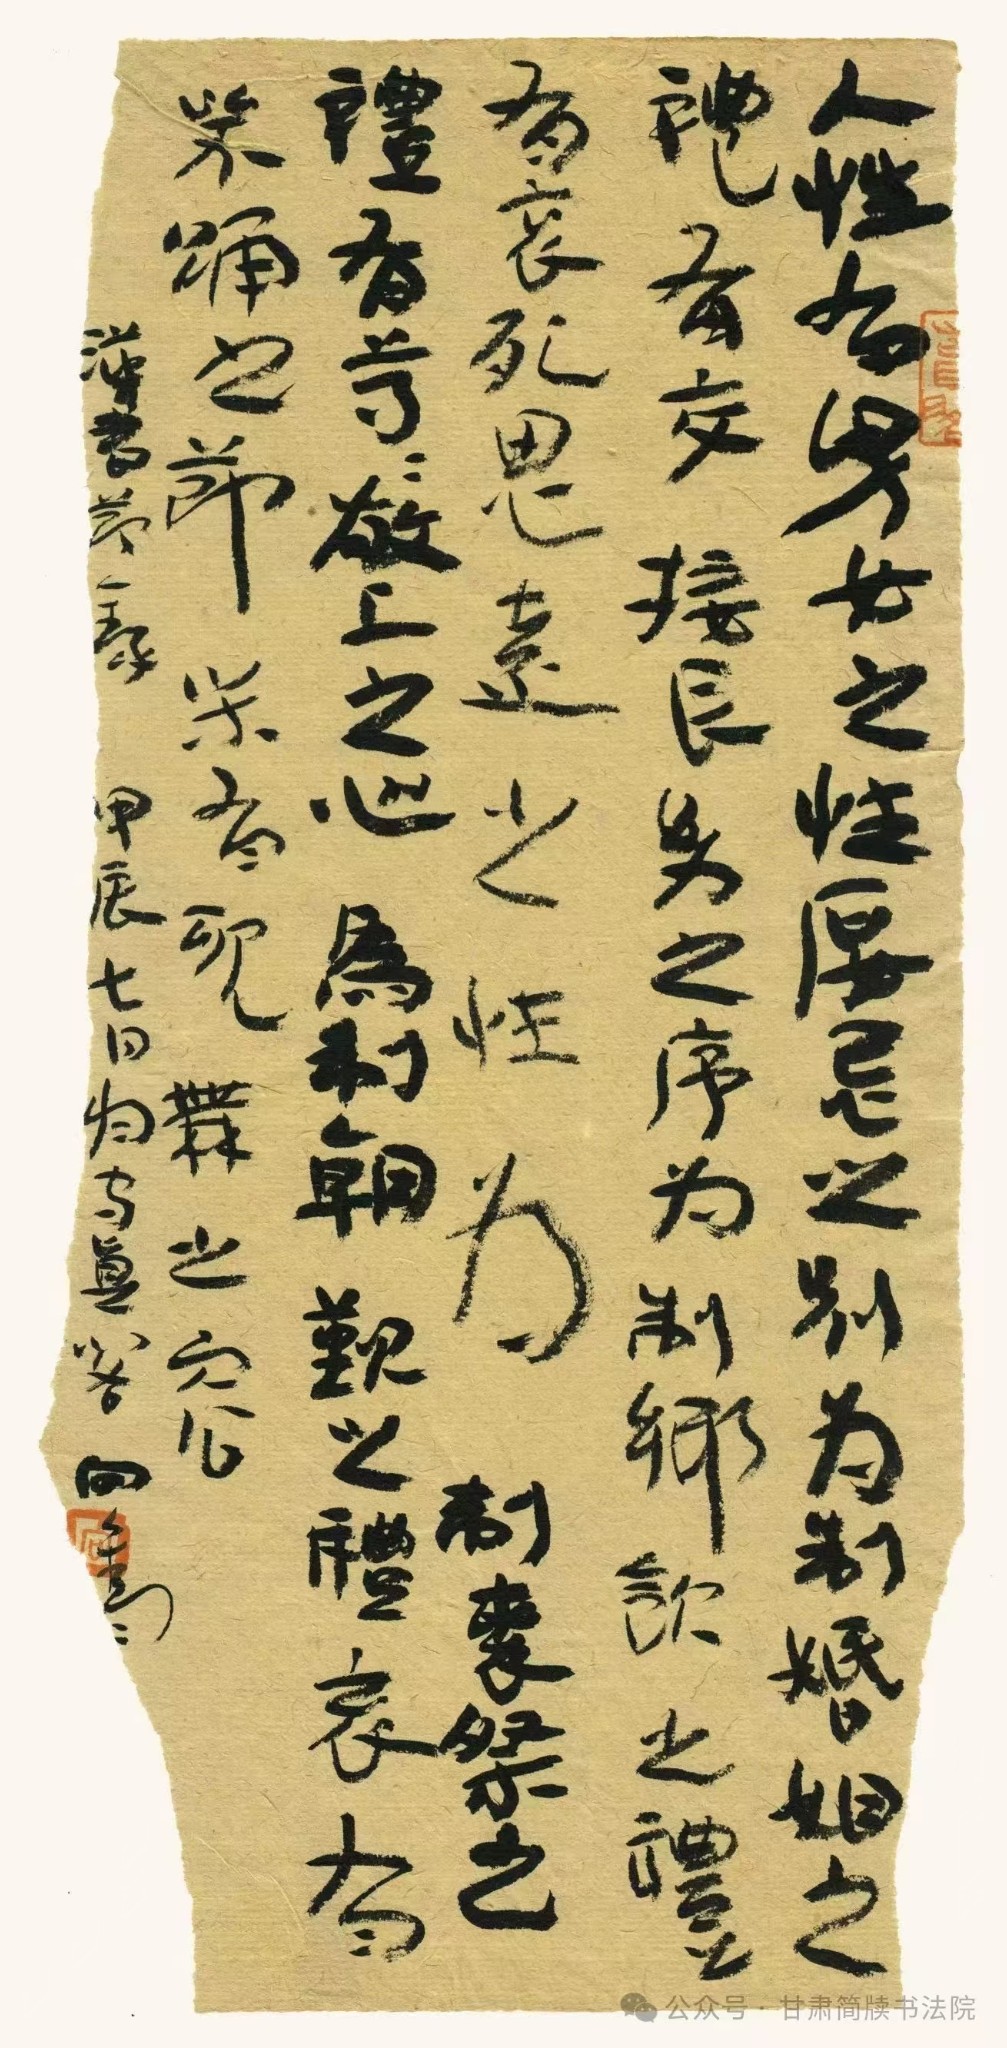 人性有男女之性妬忌之别为制婚姻之
禮有交接長幼之序为制鄉飲之禮
有哀死思遠之性为制喪祭之
禮有尊二敬上之心為制朝覲之禮哀有
哭踊之節樂有歌舞之容
漢書節錄 甲辰七日
公众号·甘肃简牍书法院